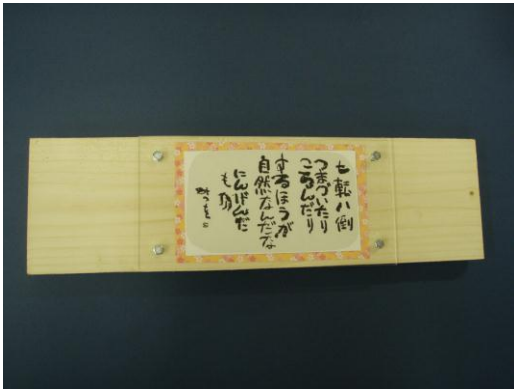 七転八倒
つまづいたり
ころんだり
するほうが
自然なんだな
にんげんだ
もの
みつを